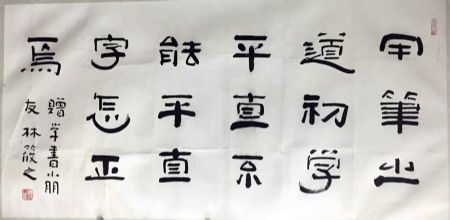 用筆之
道初學
平直不
能平直
字怎正
焉
贈學書小朋
友林筱之